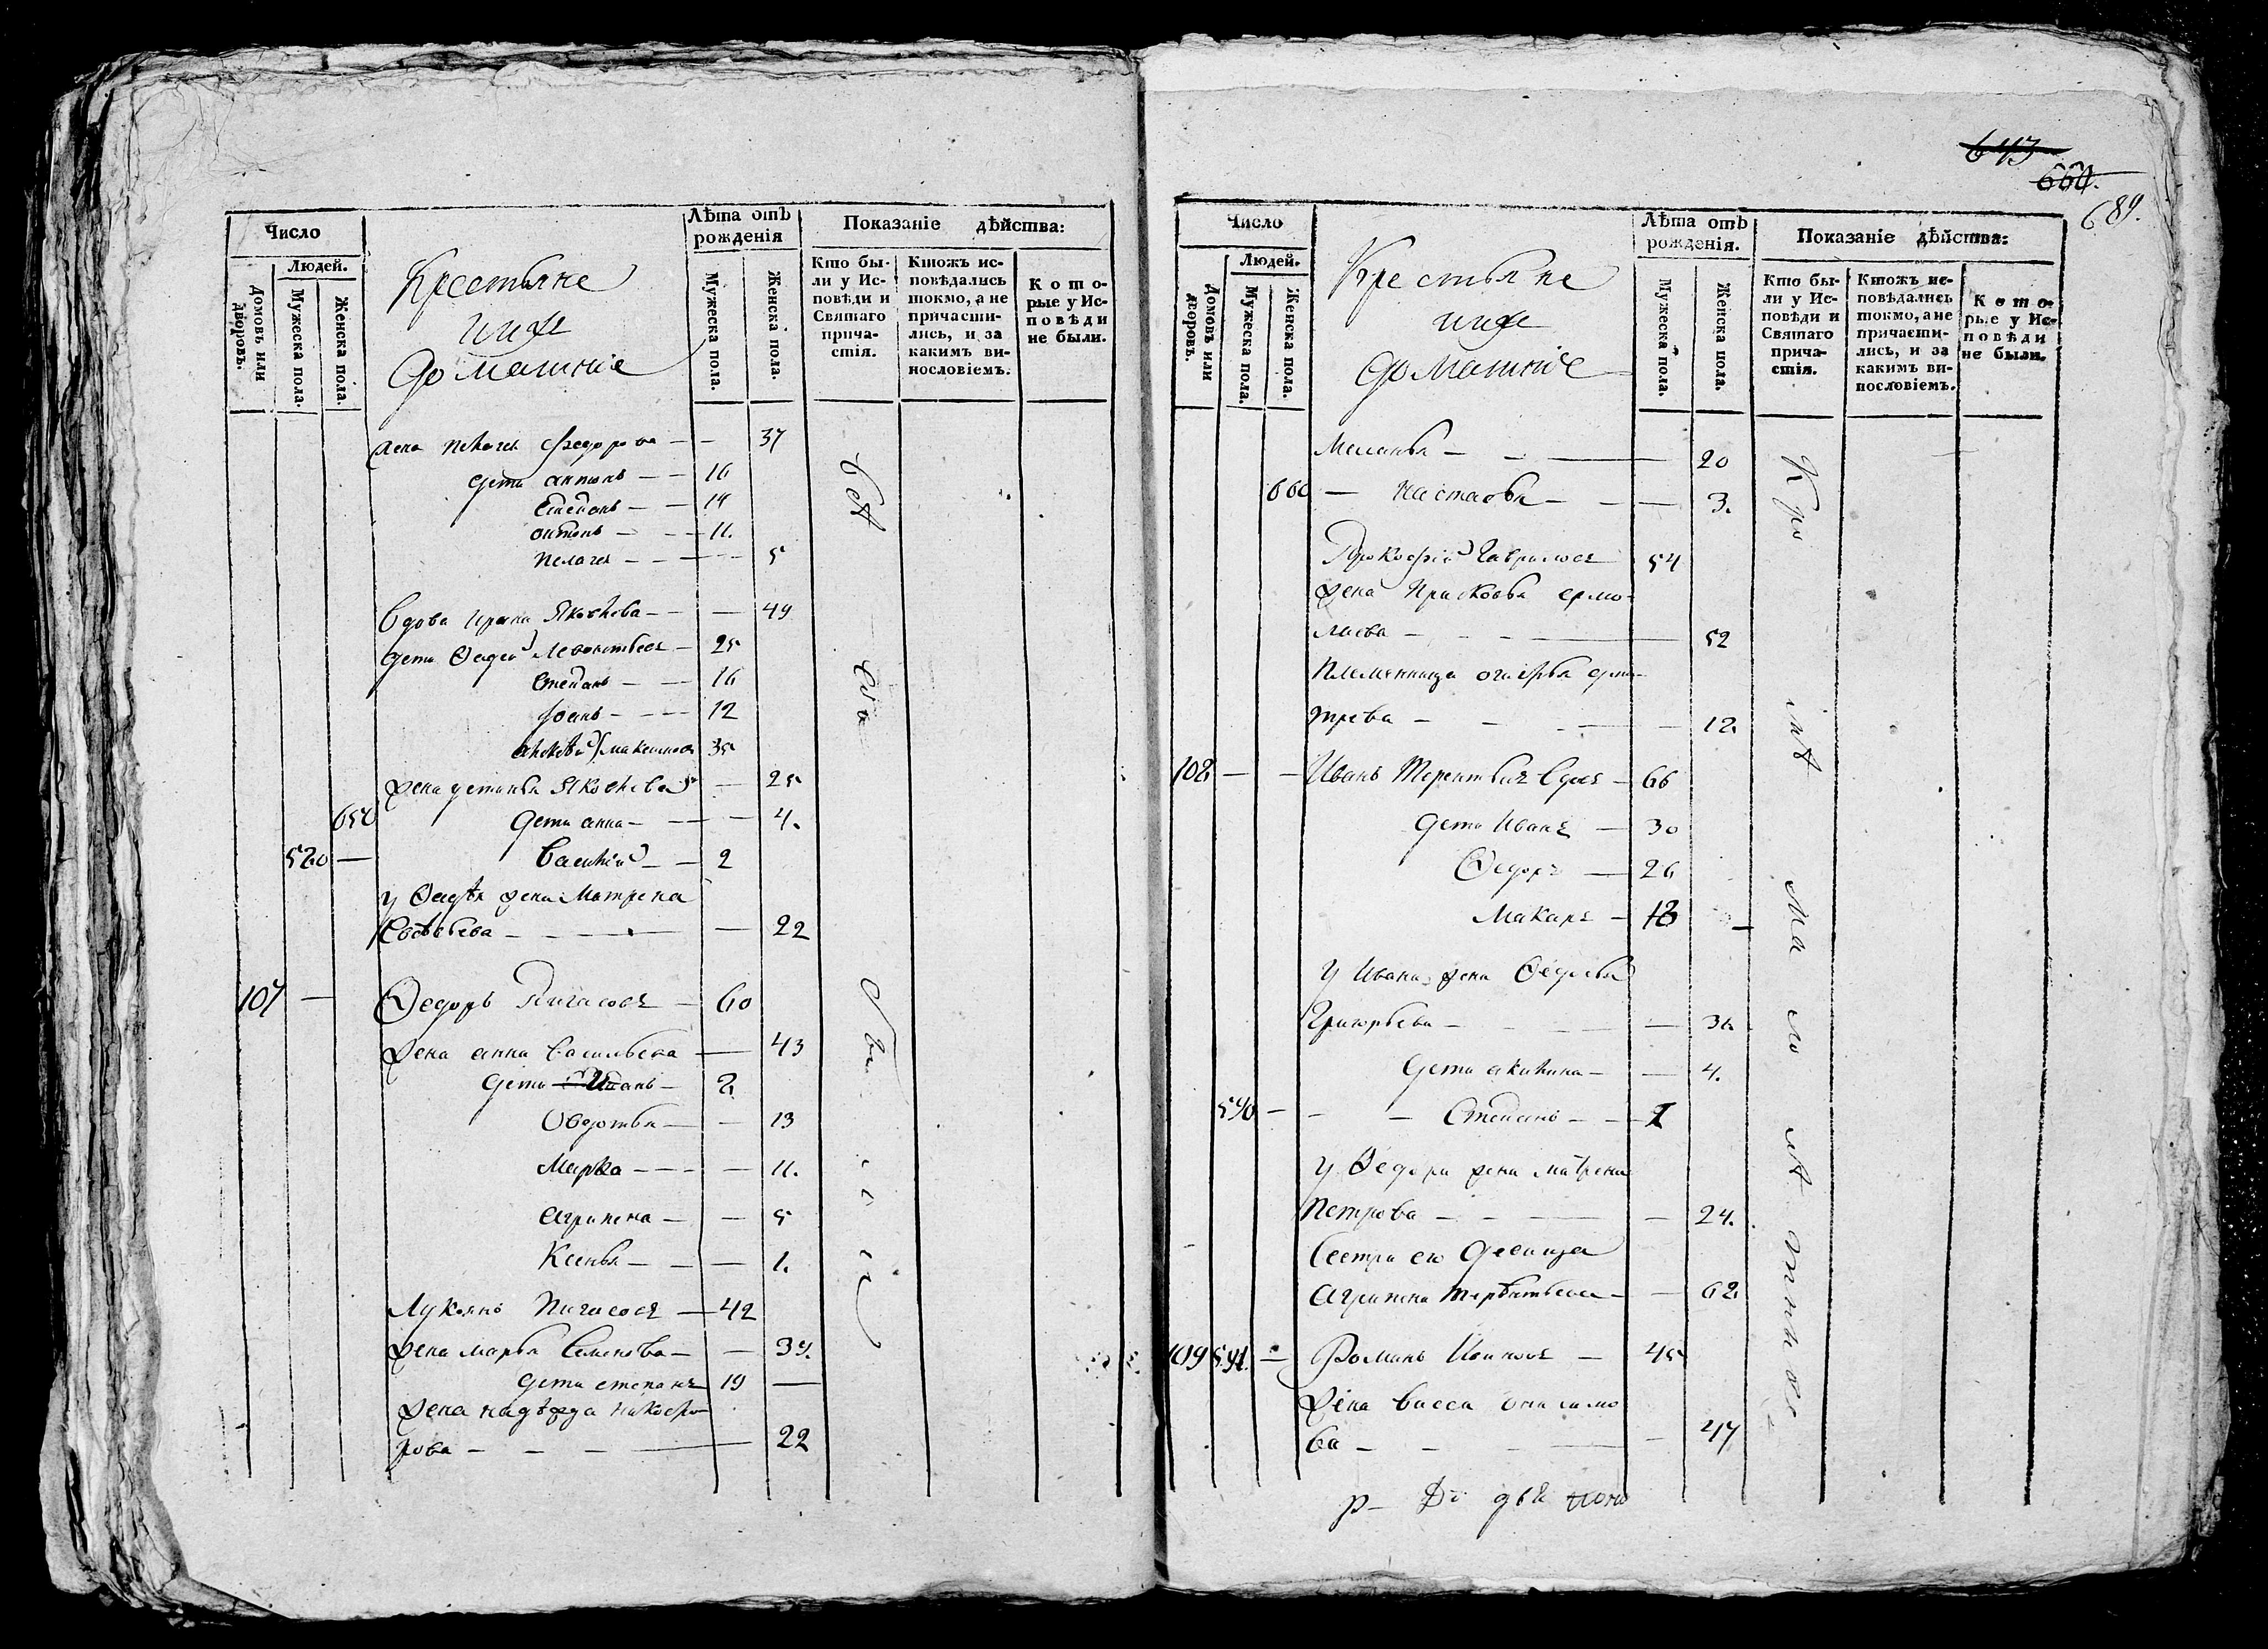 Число
Лѣта отъ рожденія
Показаніе дѣйства:
Людей.
Домовъ или дворовъ.
Мужеска пола.
Женска пола.
Крестьяне
ихже
домашніе
Мужеска пола.
Женска пола.
Кто были у Исповѣди и Святаго причастія.
Ктожъ исповѣдались токмо, а не причастились, и за какимъ винословіемъ.
Которые у Исповѣди не были.
жена Федорова — — 37
дети антонъ — — 16
Степанъ — — 14
антонъ — — — 11.
Пелагея — — — 5
Вдова Ирина Яковлева — — — 49
дети Федей Леонтьевъ — 25
Степанъ — — 16
Іванъ — — — 12
Алексѣй Максимовъ 35
жена устинья Яковлева — 25
650 дети анна — — — 4.
520 — Василий — — 2
у Федѣя жена Матрена
— — — 22
107 — Федоръ Пигасовъ — 60
жена анна Васильева — 43
дети Иванъ — 2
Овдотья — — 13
Марѳа — — — — 11.
Агрипена — — 5
Ксенья — — — 1.
Лукьянъ Пигасовъ — 42
жена марья Семенова — — 39.
дети степанъ 19 —
жена надѣжда никифо-
рова — — — — 22
643
660.
689.
Число
Лѣта отъ рожденія.
Показаніе дѣйства:
Людей.
Домовъ или дворовъ.
Мужеска пола.
Женска пола.
Крестьяне
ихже
домашніе
Мужеска пола.
Женска пола.
Кто были у Исповѣди и Святаго причастія.
Ктожъ исповѣдались токмо, а не причастились, и за какимъ винословіемъ.
Которые у Исповѣди не были.
Меланья — — — 20
660 — Настасья — — — 3.
Прокофій Гавриловъ 54
жена Прасковья ермо-
лаева — — — — 52
Племянница дми-
трева — — — — 12.
108 — — Иванъ Терентьевъ Вдовъ — 66
дети Иванъ — 30
Федоръ — 26
Макаръ — 18 —
у Ивана жена Федосья
Григорьева — — — — 31.
дети акилина — — 4.
540 — — — Степанъ — — 1
у Федора жена матрена
Петрова — — — — 24.
Сестра его девица
Агрипена терѣнтьева — — 62
109 541. — Романъ Ивановъ — 45
жена Васса
ва — — — — 47